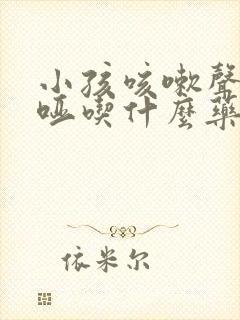 小孩咳嗽聲
啞喫什麼藥
依米尔